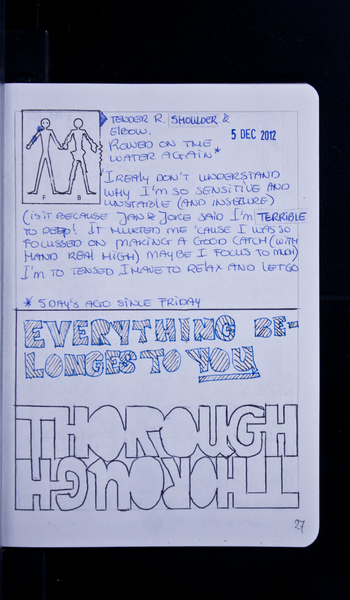 TENDER R. SHOULDER &
ELBOW.
5 DEC 2012
ROWED ON THE
WATER AGAIN*
I REALY DON'T UNDERSTAND
WHY I'M SO SENSITIVE AND
UNSTABLE (AND INSECURE)
(IS IT BECAUSE JAN & JOKE SAID I'M TERRIBLE
TO DEEP! IT HURTED ME 'CAUSE I WAS SO
FOCUSSED ON MAKING A GOOD CATCH (WITH
HAND REAL HIGH) MAYBE I FOCUS TO MUCH
I'M TO TENSED I HAVE TO RELAX AND LET GO
F B
* 5 DAY'S AGO SINCE FRIDAY
EVERYTHING BE-
LONGES TO YOU
THOROUGH
THOROUGH
27